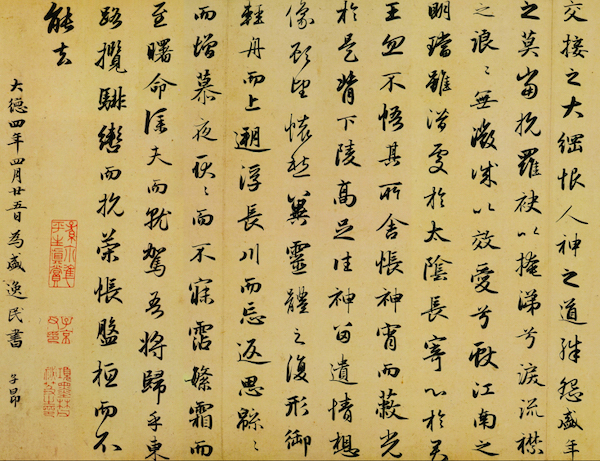 交接之大綱恨人神之道殊怨盛年
之莫當抗羅袂以掩涕兮淚流襟
之浪〻無微誠以效愛兮獻江南之
明璫雖潛處於太陰長寄心於君
王忽不悟其所舍悵神宵而蔽光
於是背下陵高足往神留遺情想
像顧望懷愁冀靈體之復形御
輕舟而上遡浮長川而忘返思緜〻
而增慕夜耿〻而不寐霑繁霜而
至曙命僕夫而就駕吾將歸乎東
路攬騑轡而抗策悵盤桓而不
能去
大德四年四月廿五日為盛逸民書 子昂
子京父印